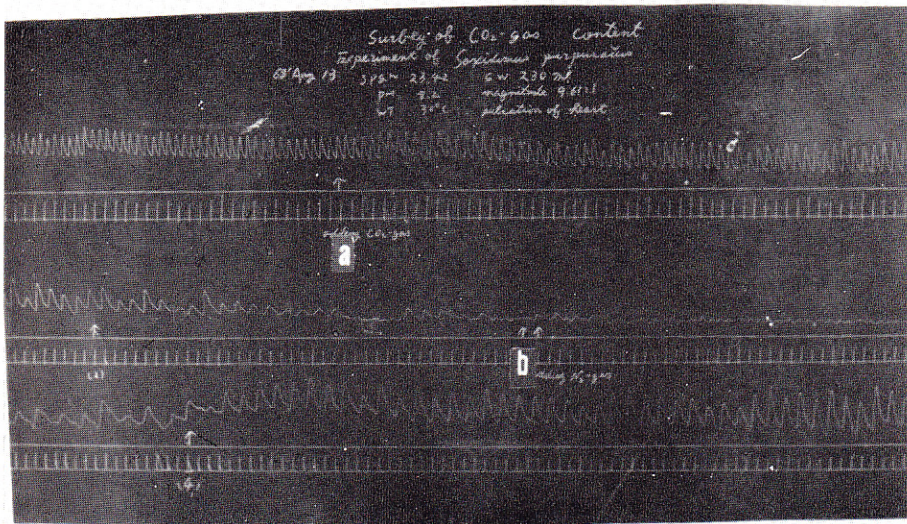 Surbey of CO₂-gas Content
Experiment of Saxidomus purpuratus
63' Aug 13 SPGr 23.42 S W 230 ml
PH 8.2 magnitude 9.65:1
WT 30°C pulsation of heart
adding CO₂-gas
a
(2)
b
adding N₂-gas
(4)